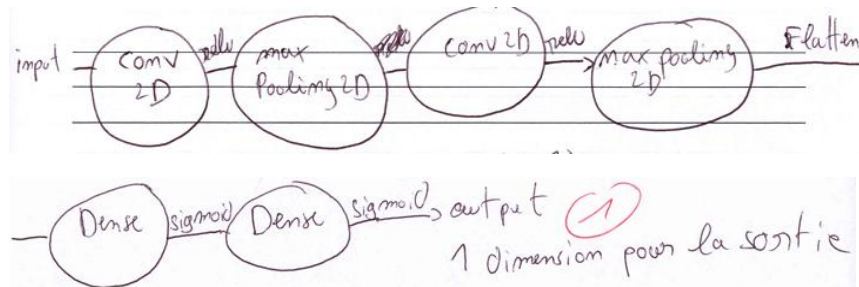 input Conv 2D relu max Pooling 2D Conv 2D relu max pooling 2D Flatten
Dense sigmoid Dense sigmoid output 1
1 dimension pour la sortie